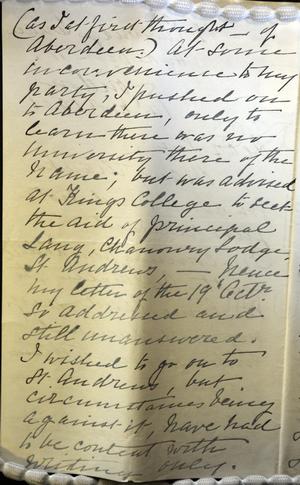 (as I at first thought - of
Aberdeen.) At some
inconvenience to my
party, I pushed on
to Aberdeen, only to
learn there was no
University there of the
name; but was advised
at Kings College to seek
the aid of Principal
Lang, Chanonry Lodge,
St. Andrews, — hence
my letter of the 19th Octr.
so addressed and
still unanswered.
I wished to go on to
St. Andrews, but
circumstances being
against it, have had
to be content with
writing only.